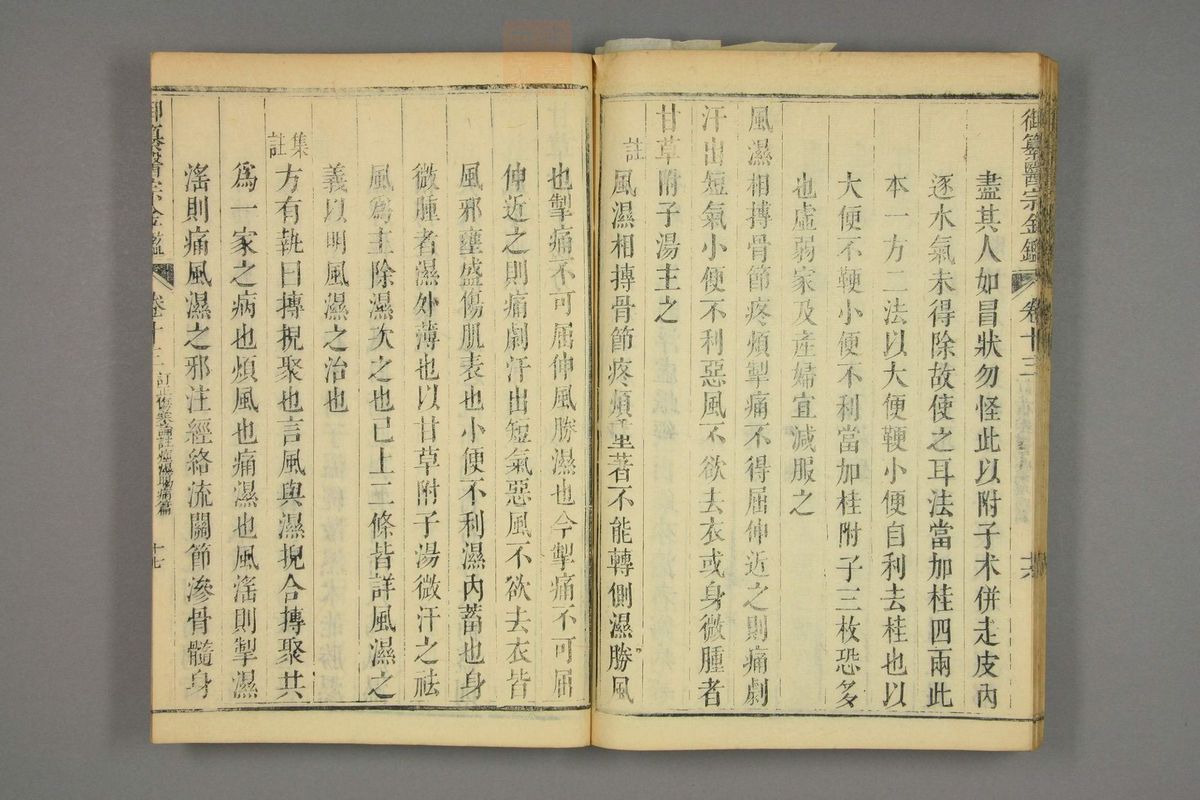 御纂醫宗金鑑 卷十三 十六
盡其人如冒狀勿怪此以附子朮併走皮內
逐水氣未得除故使之耳法當加桂四兩此
本一方二法以大便鞕小便自利去桂也以
大便不鞕小便不利當加桂附子三枚恐多
也虛弱家及產婦宜減服之
風濕相摶骨節疼煩掣痛不得屈伸近之則痛劇
汗出短氣小便不利惡風不欲去衣或身微腫者
甘草附子湯主之
註風濕相摶骨節疼煩重著不能轉側濕勝風
也掣痛不可屈伸風勝濕也今掣痛不可屈
伸近之則痛劇汗出短氣惡風不欲去衣皆
風邪壅盛傷肌表也小便不利濕內蓄也身
微腫者濕外薄也以甘草附子湯微汗之祛
風為主除濕次之也已上二條皆詳風濕之
義以明風濕之治也
集註方有執曰摶捖聚也言風與濕捖合摶聚共
為一家之病也煩風也痛濕也風淫則掣濕
淫則痛風濕之邪注經絡流關節滲骨髓身
御纂醫宗金鑑 卷十三 訂正傷寒論註痙濕暍病篇 十七